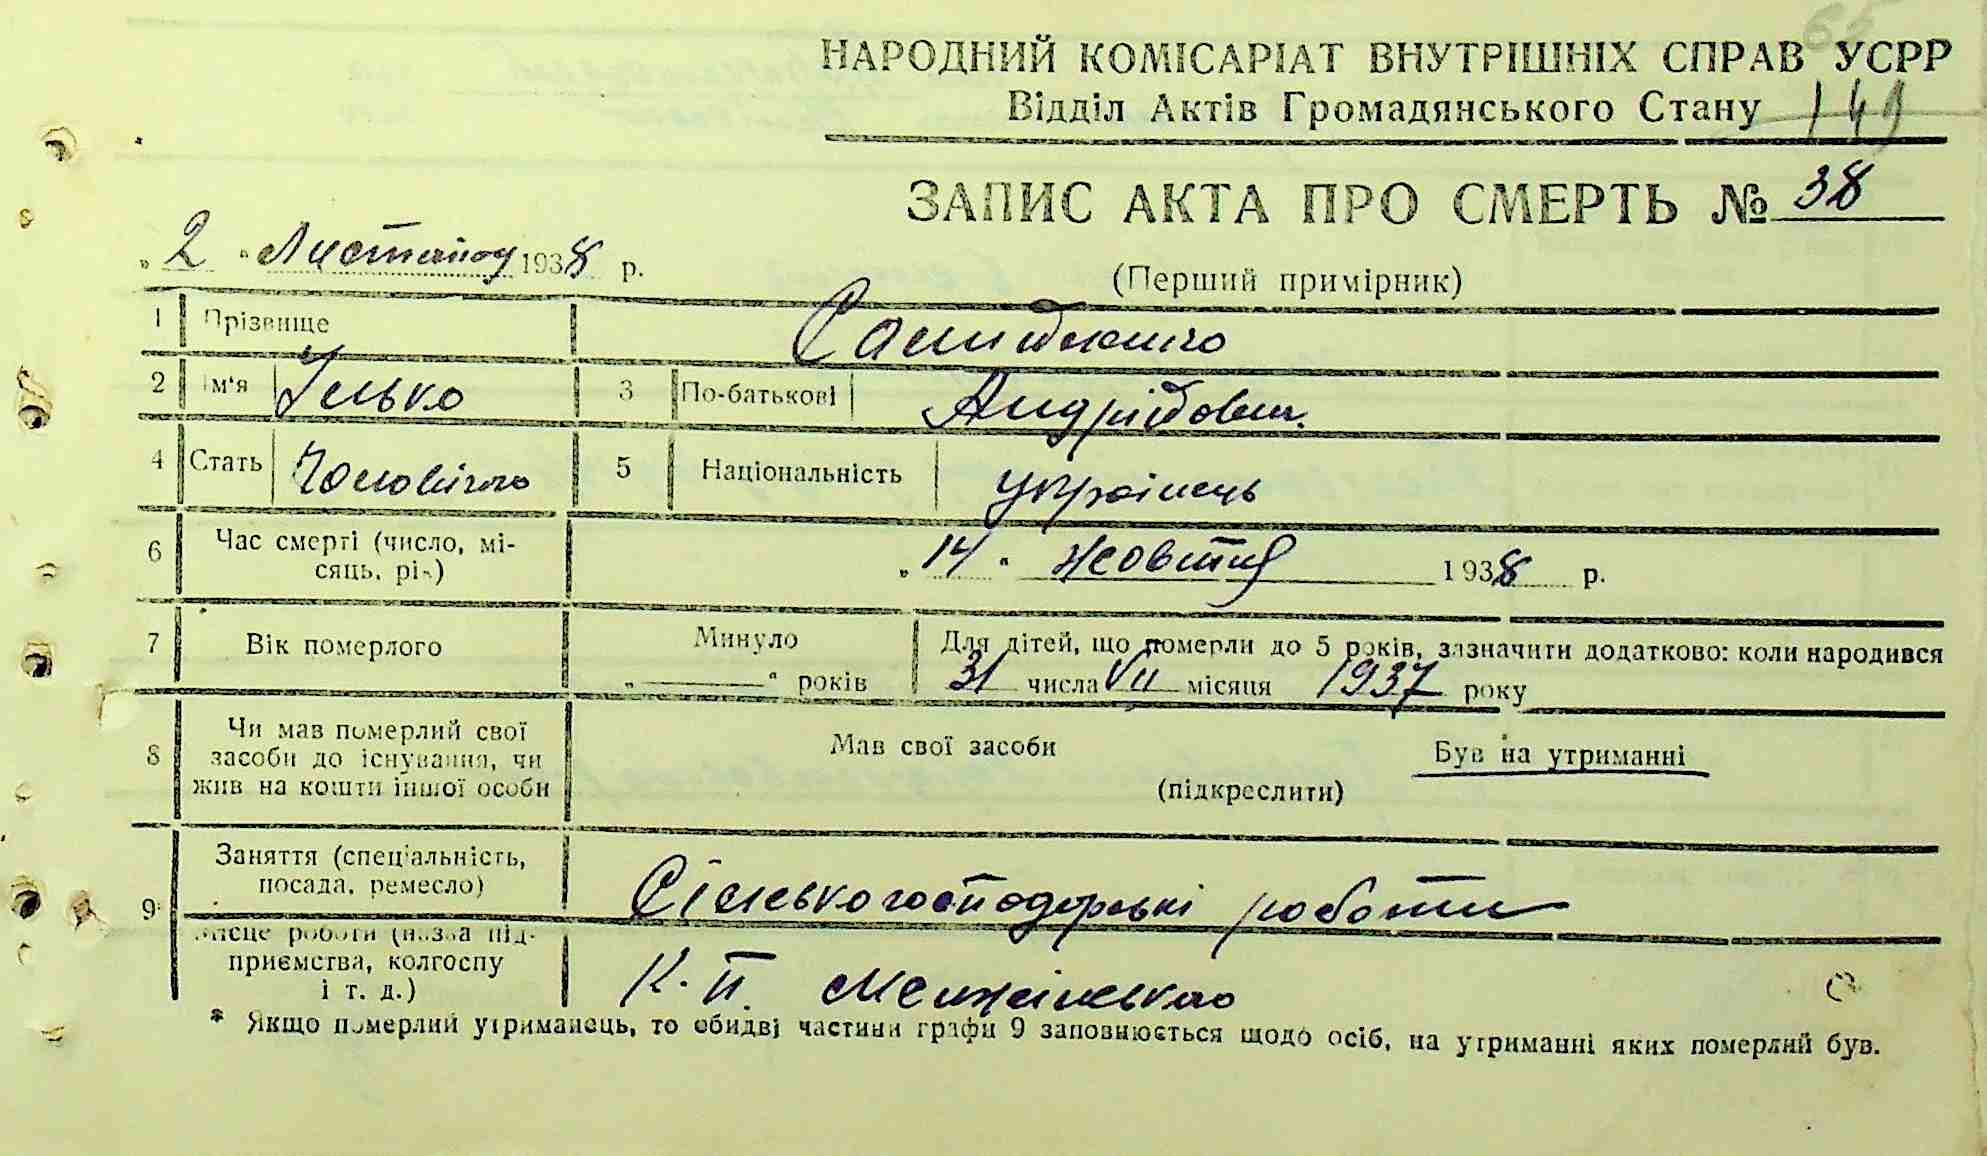 65
НАРОДНИЙ КОМІСАРІАТ ВНУТРІШНІХ СПРАВ УСРР
Відділ Актів Громадянського Стану 149
ЗАПИС АКТА ПРО СМЕРТЬ № 38
„ 2 “ Листопад 1938 р.
(Перший примірник)
1 Прізвище
2 Ім‘я Ілько 3 По-батькові Андрійович
4 Стать Чоловіча 5 Національність українець
6 Час смерті (число, мі-
сяць, рік) „ 14 “ жовтня 1938 р.
7 Вік померлого Минуло „ — “ років Для дітей, що померли до 5 років, зазначити додатково: коли народився
31 числа VII місяця 1937 року
8 Чи мав померлий свої
засоби до існування, чи
жив на кошти іншої особи
Мав свої засоби Був на утриманні
(підкреслити)
9 Заняття (спеціальність,
посада, ремесло) Сільськогосподарські роботи
Місце роботи (назва під-
приємства, колгоспу
і т. д.) К-п. Менжінського
* Якщо померлий утриманець, то обидві частини графи 9 заповнюється щодо осіб, на утриманні яких померлий був.